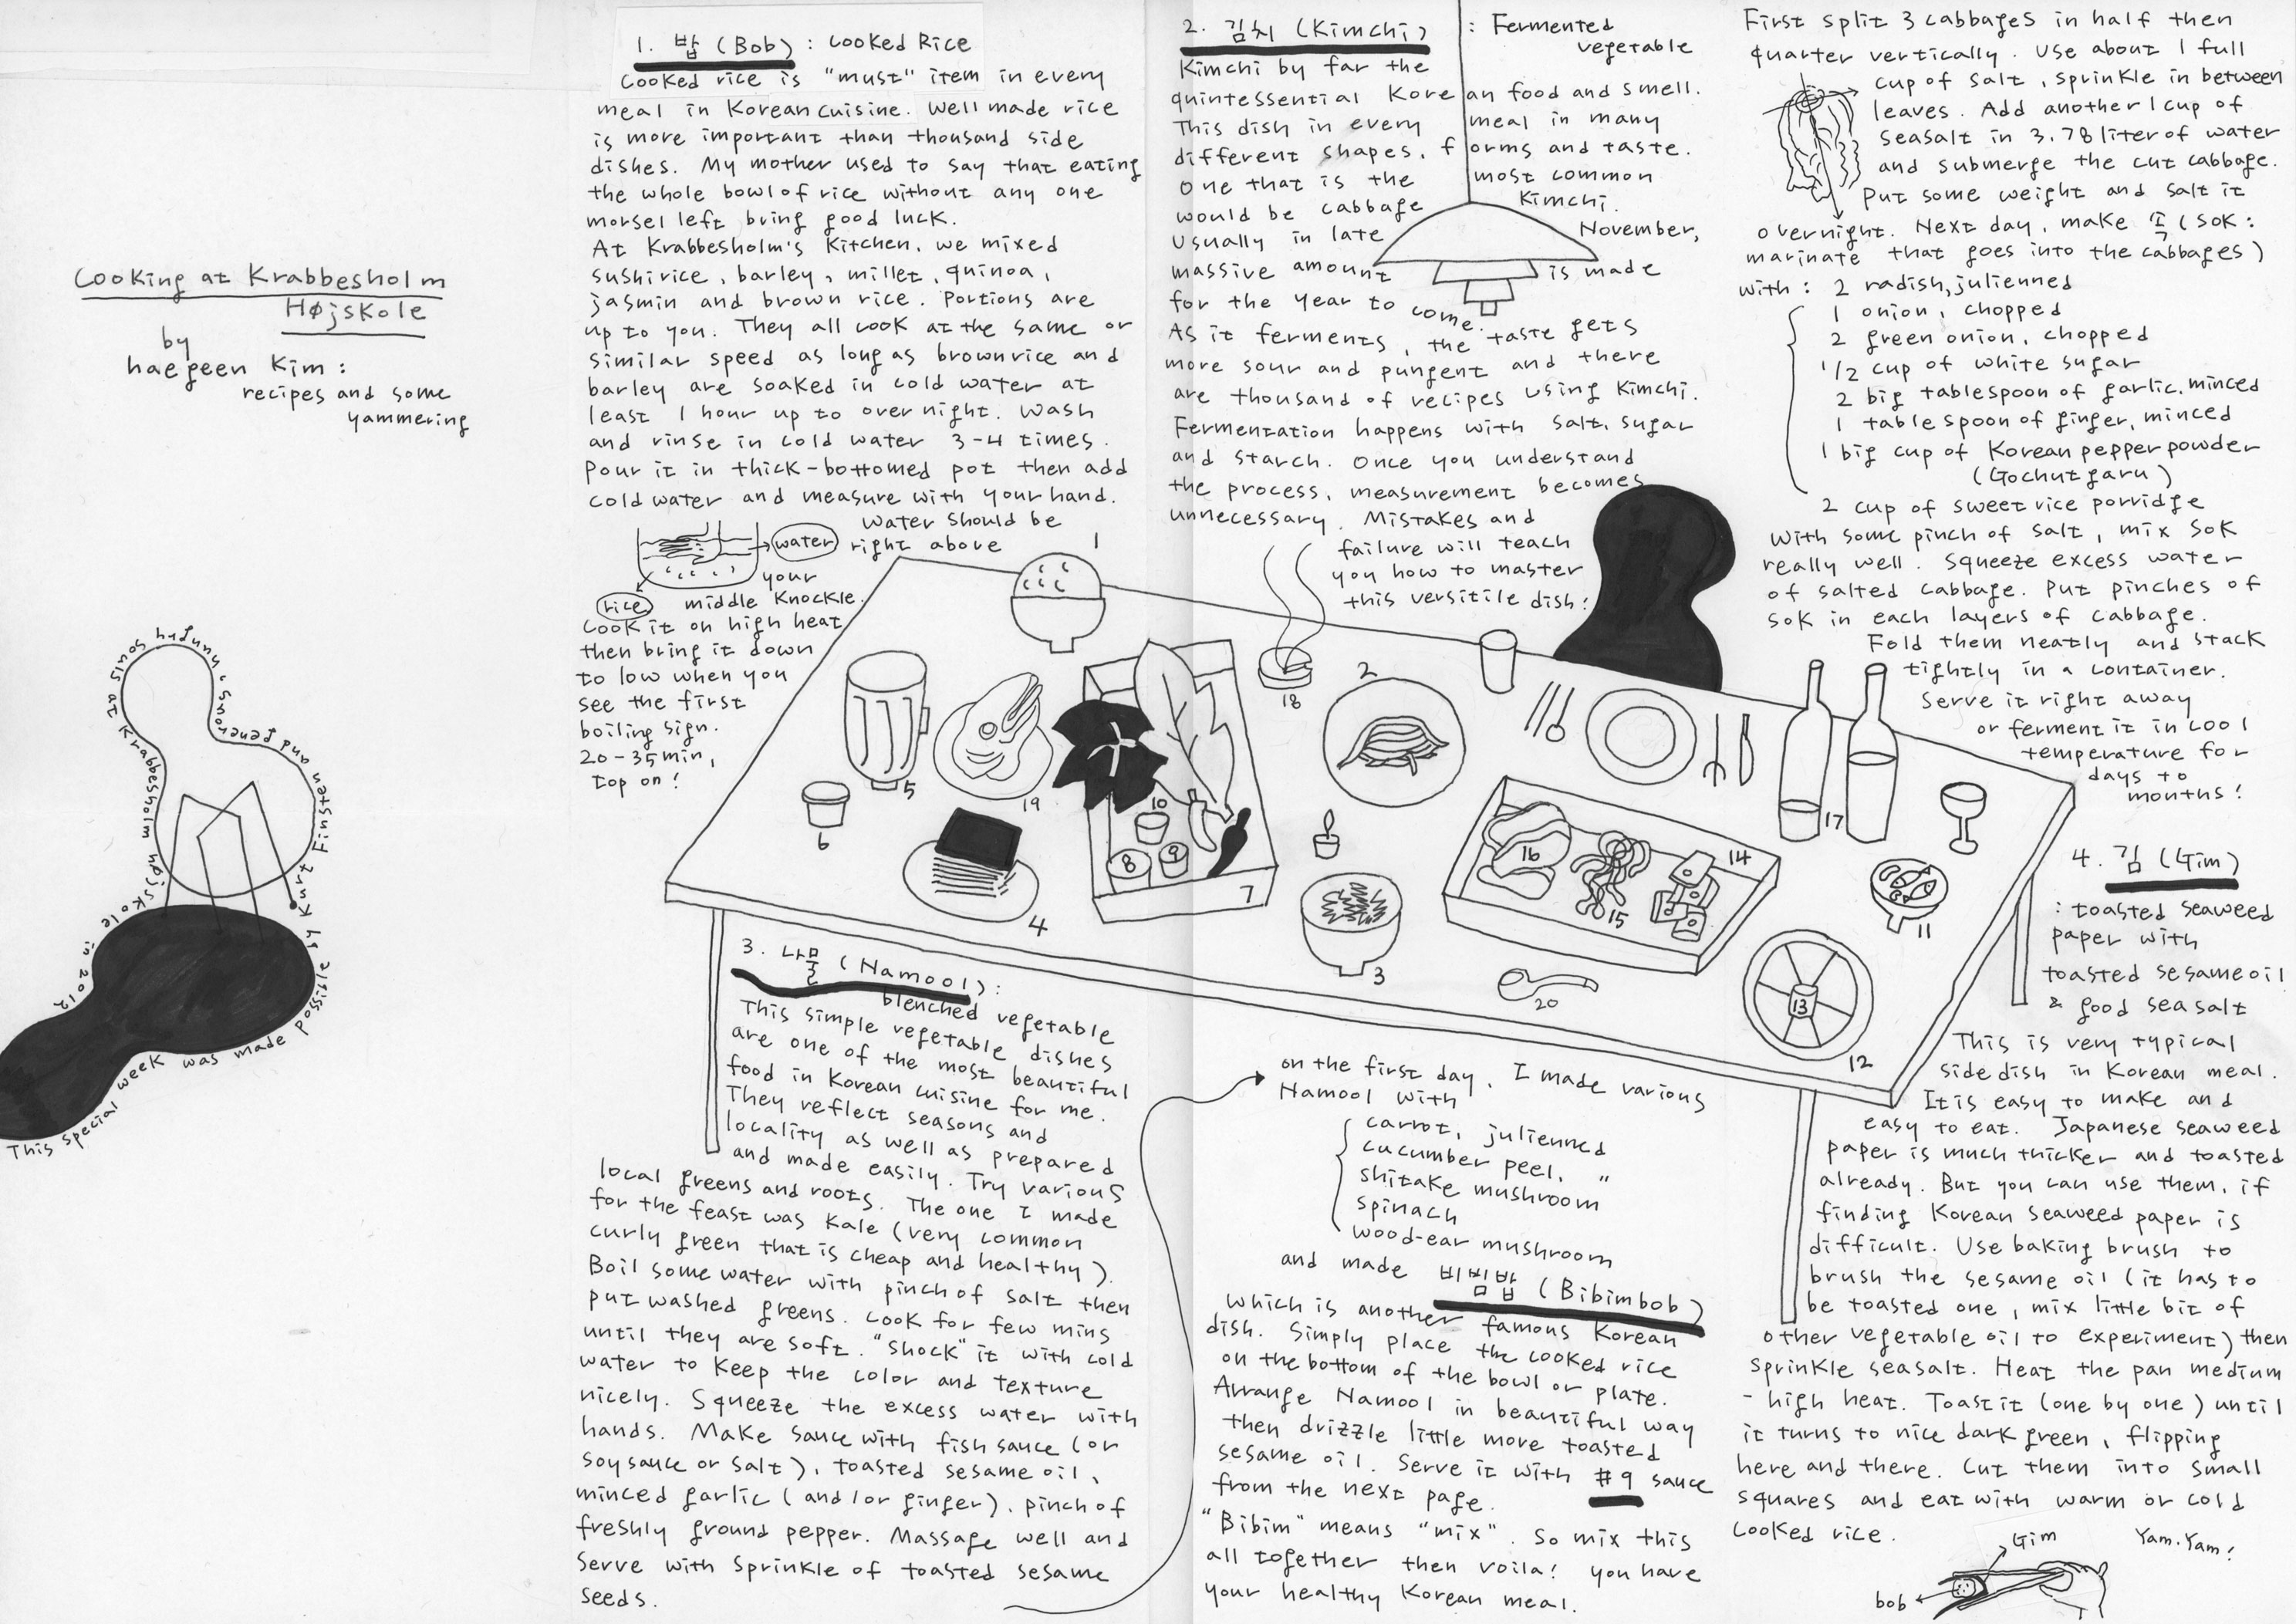 Cooking at Krabbesholm
Højskole
by
haegeen Kim:
recipes and some
yammering
This special week was made possible by Kurt Finsten and generous, hungry souls at Krabbesholm Højskole in 2012
1. 밥 (Bob) : Cooked Rice
Cooked rice is "must" item in every
meal in Korean cuisine. Well made rice
is more important than thousand side
dishes. My mother used to say that eating
the whole bowl of rice without any one
morsel left bring good luck.
At Krabbesholm's Kitchen, we mixed
sushi rice, barley, millet, quinoa,
jasmin and brown rice. Portions are
up to you. They all cook at the same or
similar speed as long as brown rice and
barley are soaked in cold water at
least 1 hour up to over night. Wash
and rinse in cold water 3-4 times.
Pour it in thick-bottomed pot then add
cold water and measure with your hand.
water
rice
Water should be
right above
your
middle Knockle.
Cook it on high heat
then bring it down
to low when you
see the first
boiling sign.
20-35min,
top on!
2. 김치 (Kimchi) : Fermented
vegetable
Kimchi by far the
quintessential Korean food and smell.
This dish in every meal in many
different shapes, forms and taste.
One that is the most common
would be cabbage Kimchi.
Usually in late November,
massive amount is made
for the year to come.
As it ferments, the taste gets
more sour and pungent and there
are thousand of recipes using Kimchi.
Fermentation happens with salt, sugar
and starch. Once you understand
the process, measurement becomes
unnecessary. Mistakes and
failure will teach
you how to master
this versitile dish!
First split 3 cabbages in half then
quarter vertically. Use about 1 full
cup of salt, sprinkle in between
leaves. Add another 1 cup of
seasalt in 3.78 liter of water
and submerge the cut cabbage.
Put some weight and salt it
overnight. Next day, make 속 (sok:
marinate that goes into the cabbages)
with: 2 radish, julienned
1 onion, chopped
2 green onion, chopped
1/2 cup of white sugar
2 big tablespoon of garlic, minced
1 table spoon of ginger, minced
1 big cup of Korean pepper powder
(Gochutgaru)
2 cup of sweet rice porridge
With some pinch of salt, mix sok
really well. Squeeze excess water
of salted cabbage. Put pinches of
sok in each layers of cabbage.
Fold them neatly and stack
tightly in a container.
Serve it right away
or ferment it in cool
temperature for
days to
months!
1
2
18
5
19
6
10
8
9
7
4
3
16
15
14
17
11
20
13
12
3. 나물 (Namool):
blenched vegetable
This simple vegetable dishes
are one of the most beautiful
food in Korean cuisine for me.
They reflect seasons and
locality as well as prepared
and made easily. Try various
local greens and roots. The one I made
for the feast was Kale (very common
curly green that is cheap and healthy).
Boil some water with pinch of salt then
put washed greens. Cook for few mins
until they are soft. "Shock" it with cold
water to keep the color and texture
nicely. Squeeze the excess water with
hands. Make sauce with fish sauce (or
soysauce or salt), toasted sesame oil,
minced garlic (and/or ginger), pinch of
freshly ground pepper. Massage well and
serve with sprinkle of toasted sesame
seeds.
on the first day, I made various
Namool with
carrot, julienned
cucumber peel, "
shitake mushroom
spinach
wood-ear mushroom
and made 비빔밥 (Bibimbob)
which is another famous Korean
dish. Simply place the cooked rice
on the bottom of the bowl or plate.
Arrange Namool in beautiful way
then drizzle little more toasted
sesame oil. Serve it with #9 sauce
from the next page.
"Bibim" means "mix". So mix this
all together then voila! you have
your healthy Korean meal.
4. 김 (Gim)
: toasted seaweed
paper with
toasted sesame oil
& good seasalt
This is very typical
side dish in Korean meal.
It is easy to make and
easy to eat. Japanese seaweed
paper is much thicker and toasted
already. But you can use them, if
finding Korean seaweed paper is
difficult. Use baking brush to
brush the sesame oil (it has to
be toasted one, mix little bit of
other vegetable oil to experiment) then
sprinkle seasalt. Heat the pan medium
-high heat. Toast it (one by one) until
it turns to nice dark green, flipping
here and there. Cut them into small
squares and eat with warm or cold
cooked rice.
Yam.Yam!
Gim
bob